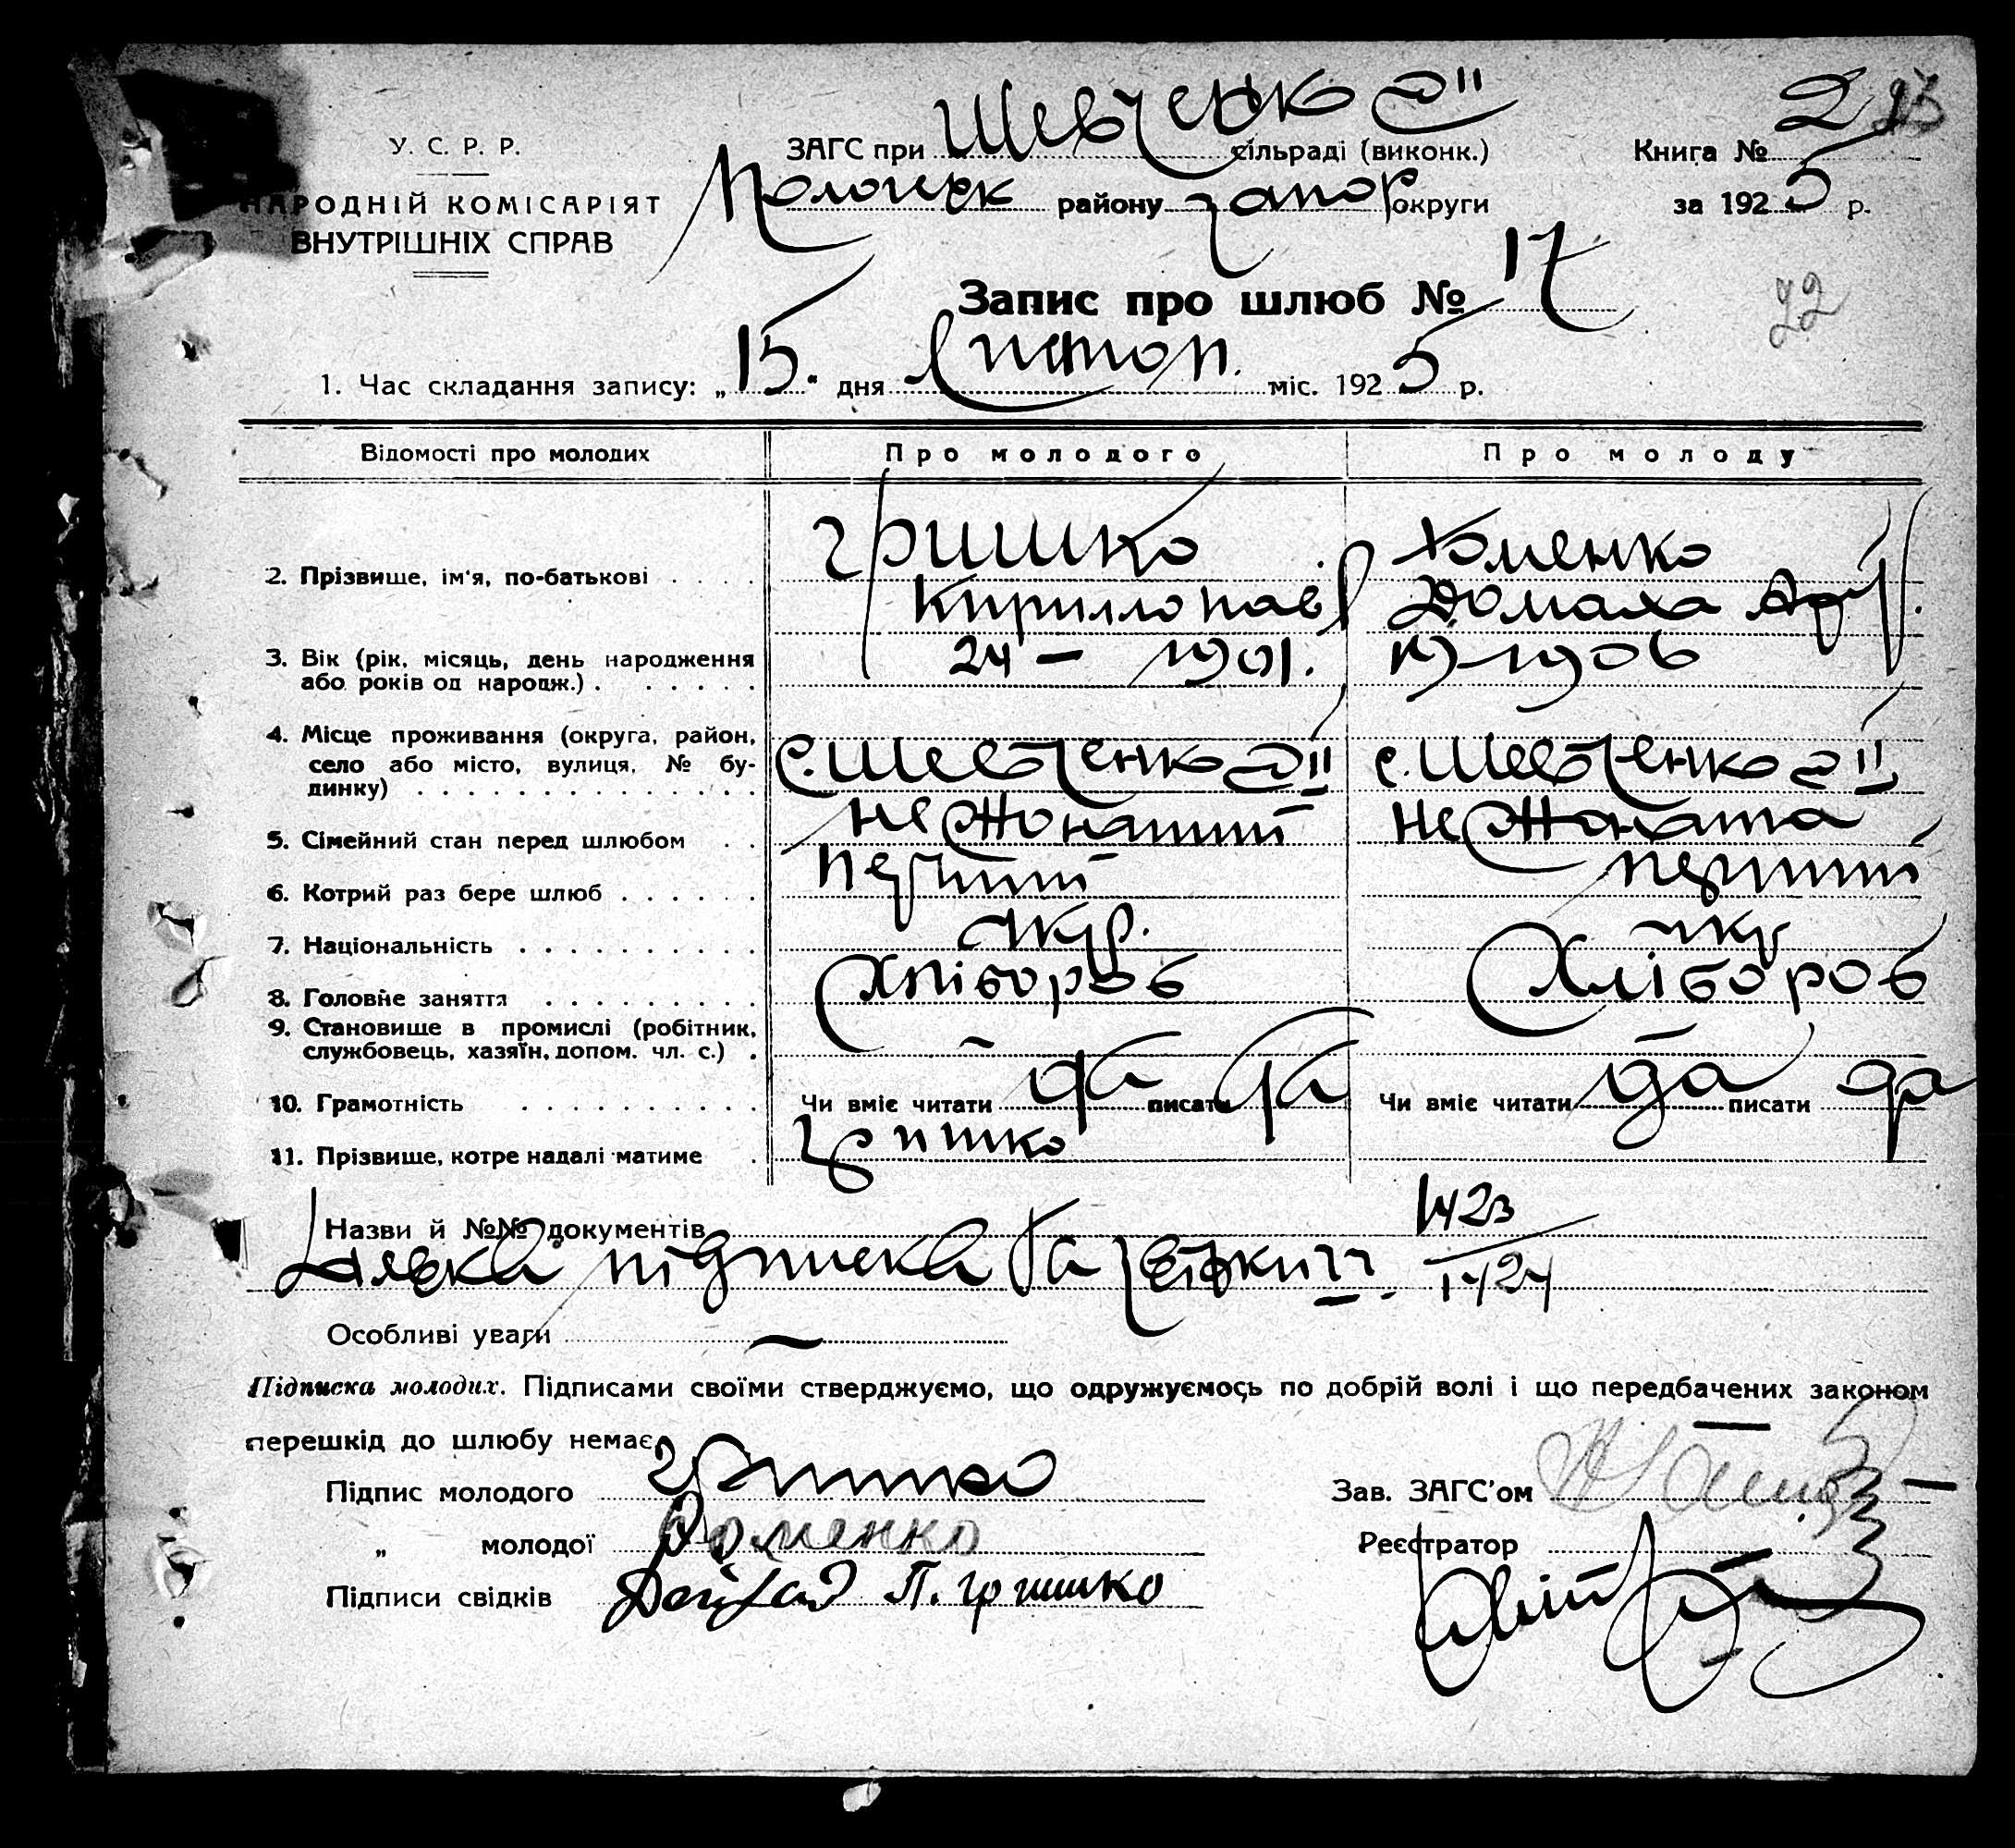 У. С. Р. Р.
НАРОДНІЙ КОМІСАРІЯТ
ВНУТРІШНІХ СПРАВ
ЗАГС при Шевченко ІІ сільраді (виконк.)
Пологськ району Запор округи
Книга № 2
за 1925 р.
Запис про шлюб № 17
72
1. Час складання запису: „15" дня Листоп. міс. 1925 р.
Відомості про молодих Про молодого Про молоду
2. Прізвише, ім'я, по-батькові . . . . Гришко Хоменко
Кирилло Пав Домаха
3. Вік (рік, місяць, день народження 24 — 1901. 19-1906
або років од народж.) . . . . . .
4. Місце проживання (округа, район,
село або місто, вулиця, № бу- с. Шевченко ІІ с. Шевченко ІІ
динку) . . . . . . . . . . . . . .
5. Сімейний стан перед шлюбом . . не жонатий не жоната
6. Котрий раз бере шлюб . . . . . . перший перший
7. Національність . . . . . . . . . . Укр. Укр
8. Головне заняття . . . . . . . . . Хліборов Хліборов
9. Становище в промислі (робітник,
службовець, хазяїн, допом. чл. с.) . –
10. Грамотність . . . . . . . . . . Чи вміє читати да писати да Чи вміє читати да писати да
11. Прізвише, котре надалі матиме . Гришко
Назви й №№ документів 1423
Заявка підписка та 1424
Особливі уваги –
Підписка молодих. Підписами своїми стверджуємо, що одружуємось по добрій волі і що передбачених законом
перешкід до шлюбу немає.
Підпис молодого Гришко
Зав. ЗАГС'ом
„ молодої Хоменко
Реєстратор
Підписи свідків П. Гришко